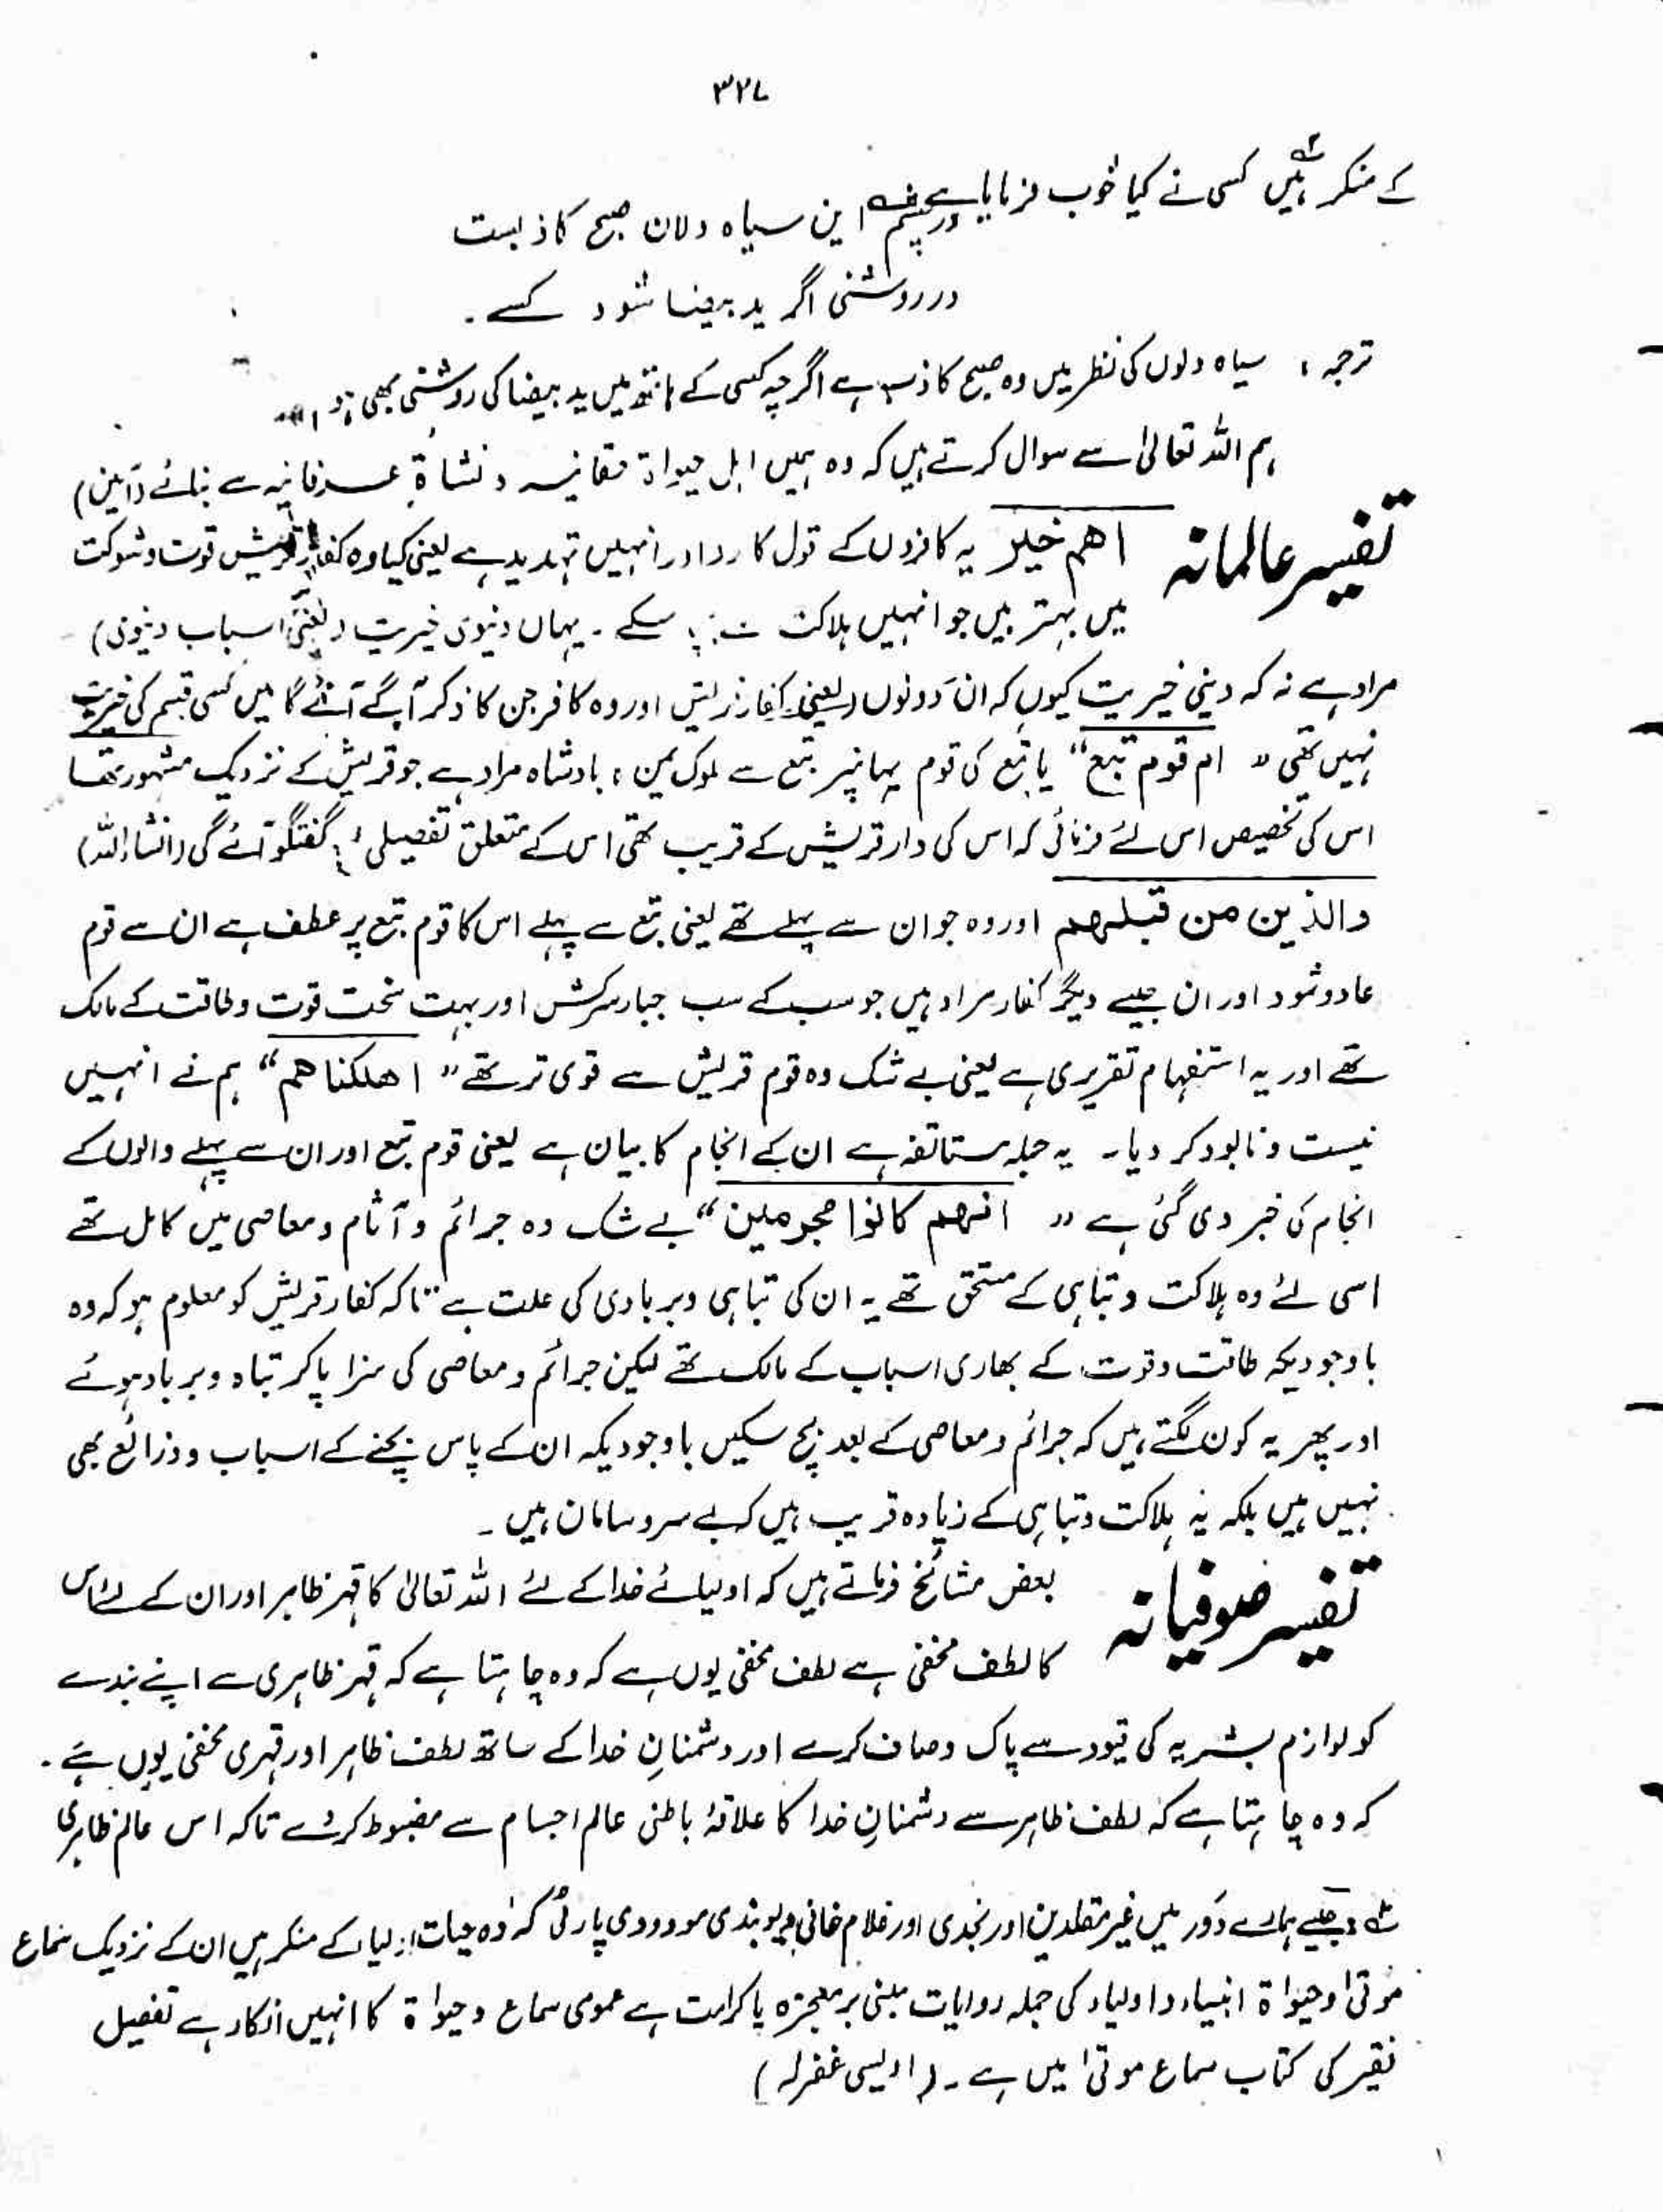 ۳۲۷
کے منکر ہیں کسی نے کیا خوب فرمایا ہے در چشم این سیاہ دلان صبح کاذبست
در روشنی اگر ید بیضا شود کسے۔
ترجمہ: سیاہ دلوں کی نظر میں وہ صبح کاذب ہے اگرچہ کسی کے ہاتھ میں ید بیضا کی روشنی بھی ہو
ہم اللہ تعالیٰ سے سوال کرتے ہیں کہ وہ ہمیں اہل حیواۃ حقانیہ و نشاۃ عرفانیہ سے بنائے (آمین)
تفسیر عالمانہ اھم خیر یہ کافروں کے قول کا رد اور انہیں تہدید ہے یعنی کیا وہ کفار قریش قوت و شوکت
میں بہتر ہیں جو انہیں ہلاکت سکے۔ یہاں دنیوی خیریت (یعنی اسباب دنیوی)
مراد ہے نہ کہ دینی خیریت کیوں کہ ان دونوں (یعنی کفار قریش اور وہ کافر جن کا ذکر آگے آئے گا میں کسی قسم کی خیریت
نہیں تھی " ام قوم تبع" یا تبع کی قوم یہانپر تبع سے ملوک یمن، بادشاہ مراد ہے جو قریش کے نزدیک مشہور تھا
اس کی تخصیص اس لئے فرمائی کہ اس کی دار قریش کے قریب تھی اس کے متعلق تفصیلی گفتگو آئے گی (انشاءاللہ)
والذین من قبلھم اور وہ جو ان سے پہلے تھے یعنی تبع سے پہلے اس کا قوم تبع پر عطف ہے ان سے قوم
عاد و ثمود اور ان جیسے دیگر کفار مراد ہیں جو سب کے سب جبار سرکش اور بہت سخت قوت و طاقت کے مالک
تھے اور یہ استفہام تقریری ہے یعنی بے شک وہ قوم قریش سے قوی تر تھے " اھلکنا ھم" ہم نے انہیں
نیست و نابود کر دیا۔ یہ جملہ ستانفہ ہے ان کے انجام کا بیان ہے یعنی قوم تبع اور ان سے پہلے والوں کے
انجام کی خبر دی گئی ہے " انھم کانوا مجرمین" بے شک وہ جرائم و آثام و معاصی میں کامل تھے
اسی لئے وہ ہلاکت و تباہی کے مستحق تھے یہ ان کی تباہی و بربادی کی علت ہے تاکہ کفار قریش کو معلوم ہو کہ وہ
باوجودیکہ طاقت و قوت کے بھاری اسباب کے مالک تھے لیکن جرائم و معاصی کی سزا پاکر تباہ و برباد ہوئے
اور پھر یہ کون لگتے ہیں کہ جرائم و معاصی کے بعد بچ سکیں باوجودیکہ ان کے پاس بچنے کے اسباب و ذرائع بھی
نہیں ہیں بلکہ یہ ہلاکت و تباہی کے زیادہ قریب ہیں کہ بے سروسامان ہیں۔
تفسیر صوفیانہ بعض مشائخ فرماتے ہیں کہ اولیائے خدا کے لئے اللہ تعالیٰ کا قہر ظاہر اور ان کے لئے اس
کا لطف مخفی ہے لطف مخفی یوں ہے کہ وہ چاہتا ہے کہ قہر ظاہری سے اپنے بندے
کو لوازم بشریہ کی قیود سے پاک و صاف کرے اور دشمنانِ خدا کے ساتھ لطف ظاہر اور قہری مخفی یوں ہے۔
کہ وہ چاہتا ہے کہ لطف ظاہر سے دشمنانِ خدا کا علاقۂ باطنی عالم اجسام سے مضبوط کرے تاکہ اس عالم ظاہری
جیسے ہمارے دَور میں غیر مقلدین اور نجدی اور غلام خانی دیوبندی مودودی پارٹی کہ وہ حیات اولیاء کے منکر ہیں ان کے نزدیک سماع
موتیٰ و حیواۃ انبیاء و اولیاء کی جملہ روایات مبنی بر معجزہ یا کرامت ہے عمومی سماع و حیواۃ کا انہیں انکار ہے تفصیل
فقیر کی کتاب سماع موتیٰ میں ہے۔ (اویسی غفرلہ)